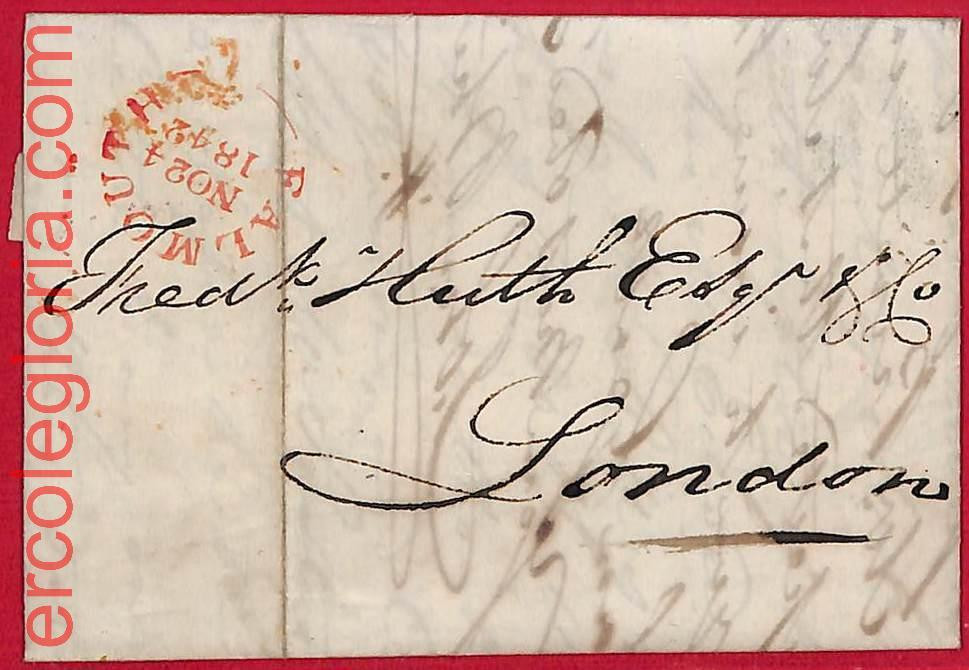 ercolegloria.com
FALMOUTH
NO24
1842
Fredk. Huth Esqr & Co
London